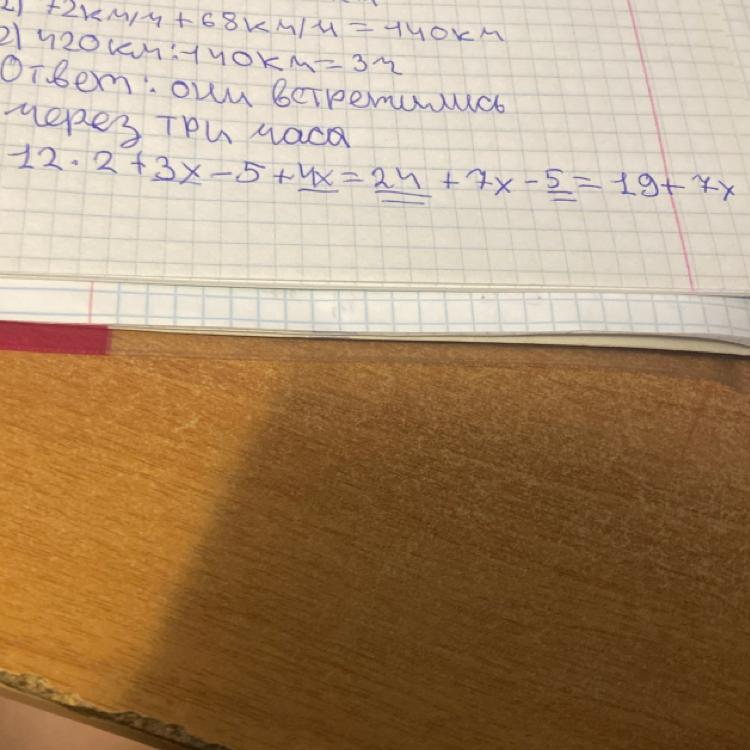 1) 72км/ч + 68км/ч = 140км
2) 420км : 140км = 3ч
Ответ: они встретились
через три часа
12 · 2 + 3x - 5 + 4x = 24 + 7x - 5 = 19 + 7x